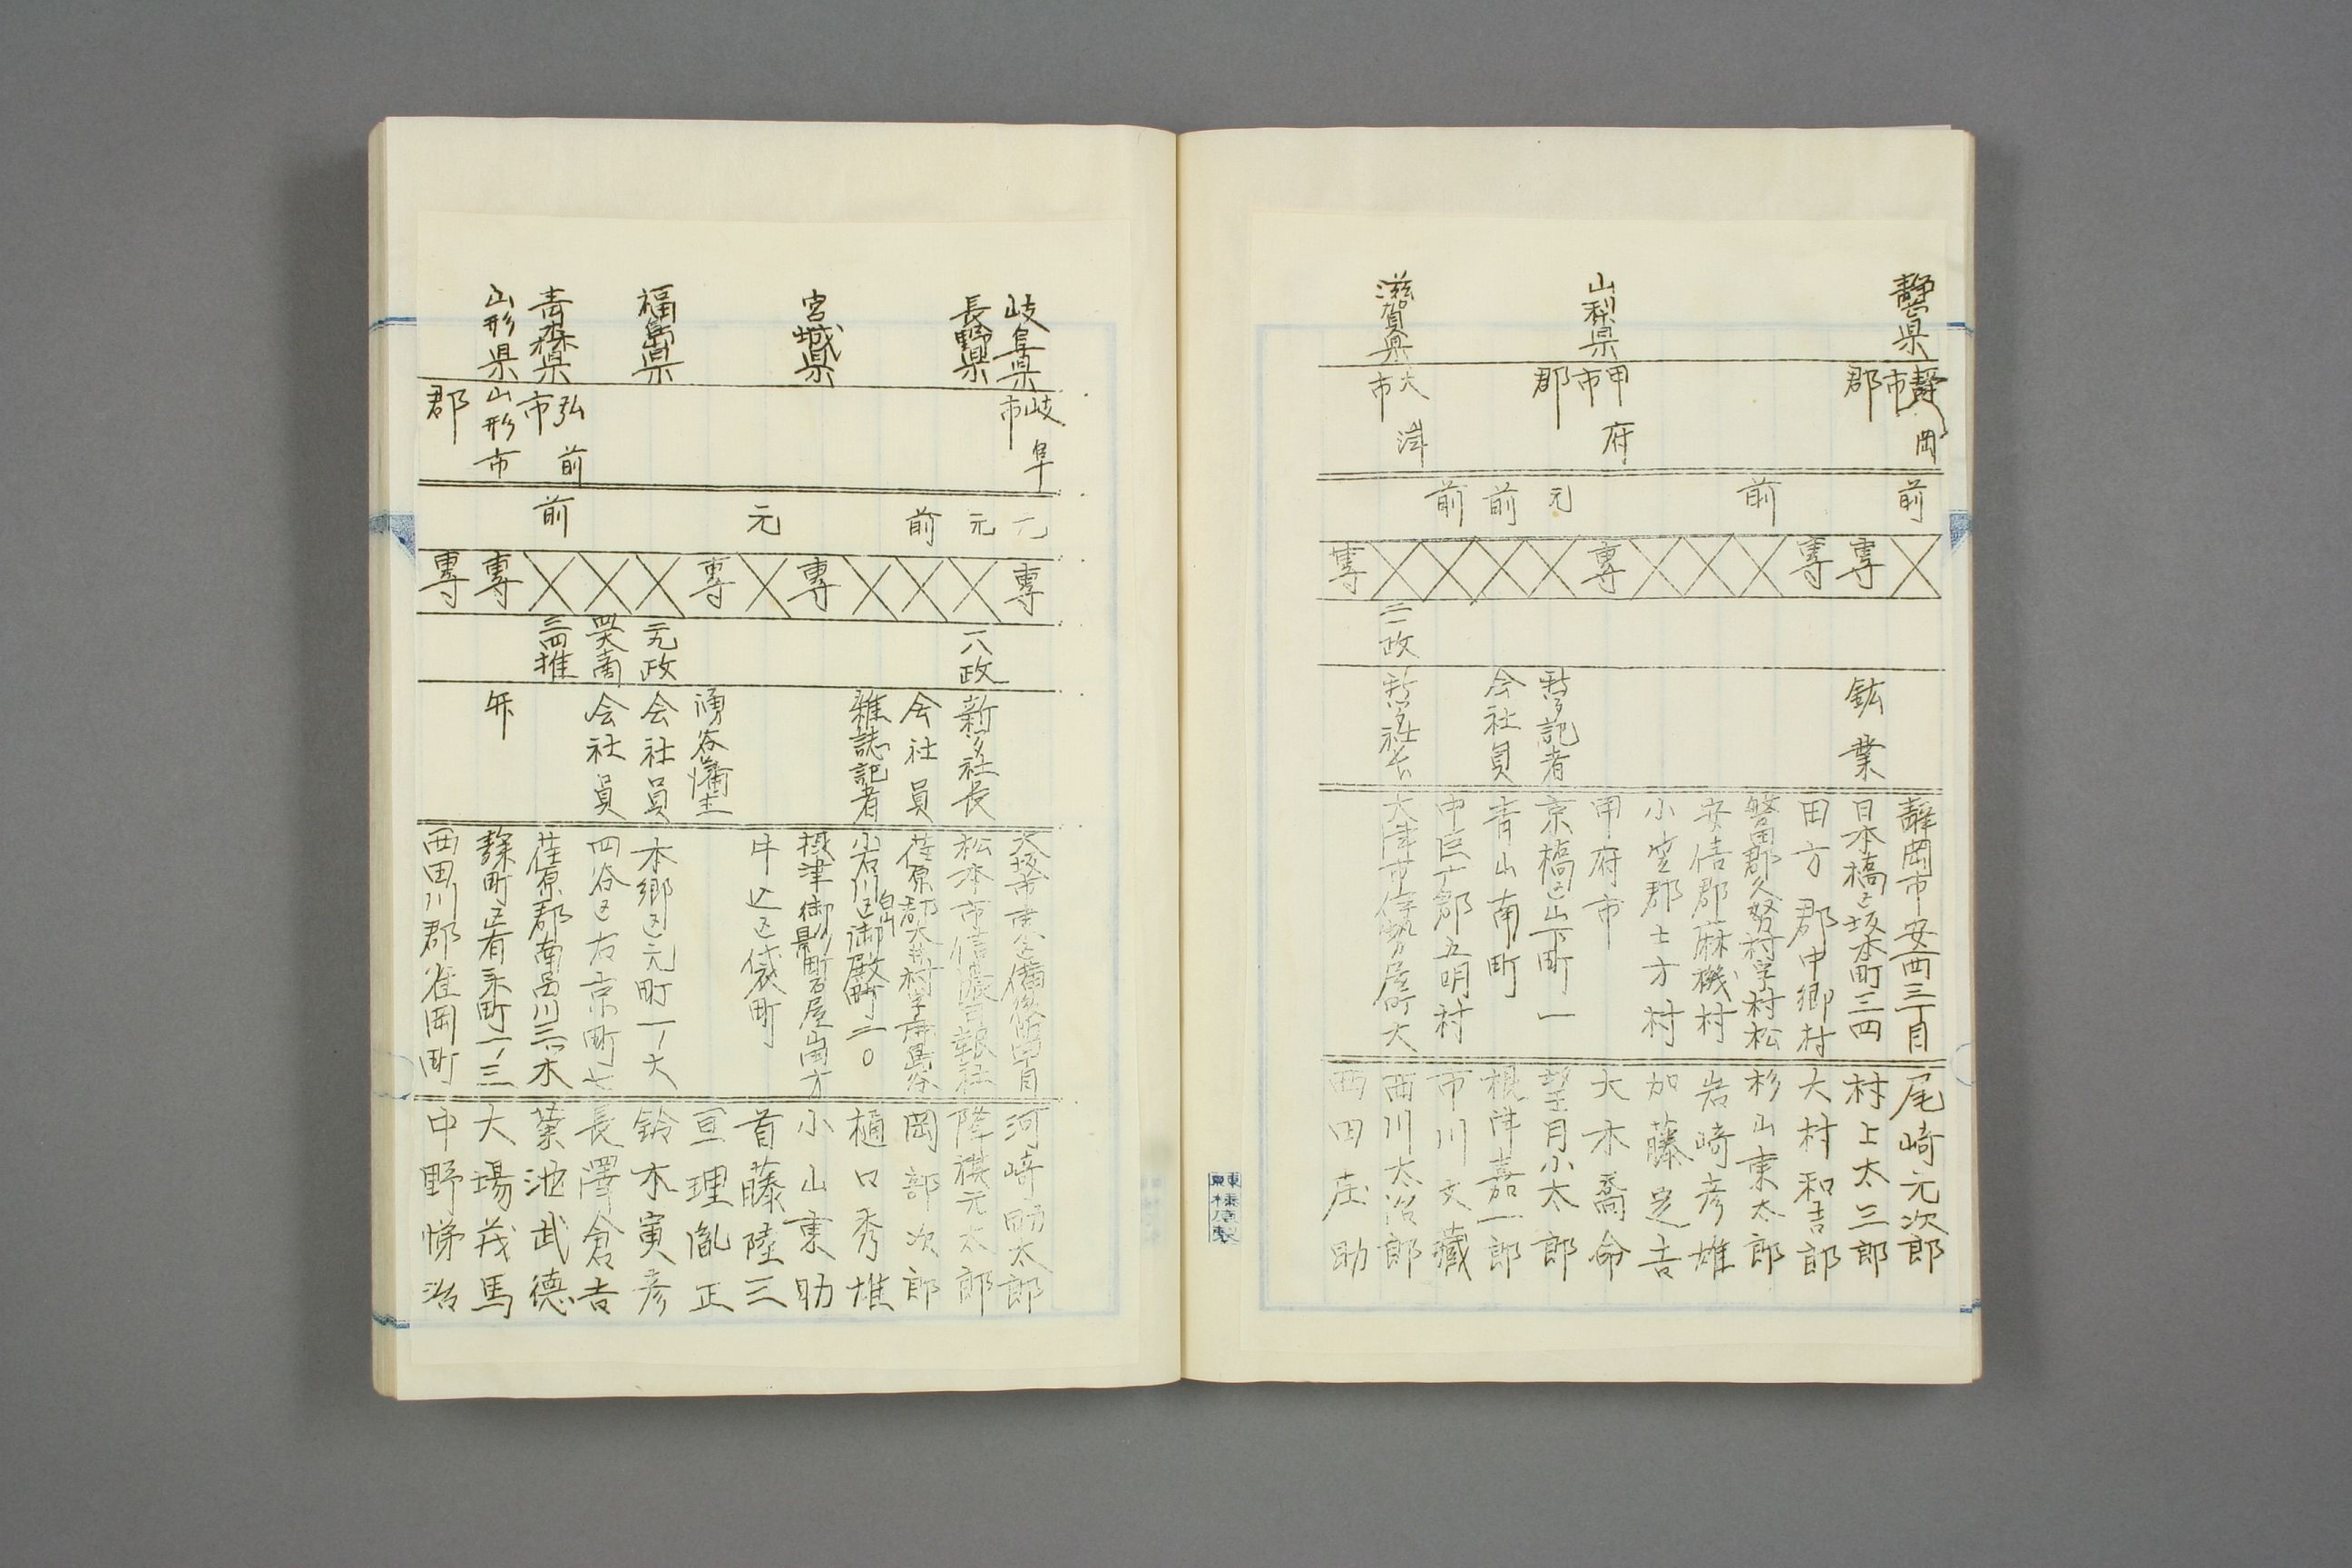 静岡県 静岡市 前 尾崎元次郎 静岡市安西三丁目
郡 専 鉱業 日本橋区坂本町三四 村上太三郎
専 田方郡中郷村 大村和吉郎
前 磐田郡久努村字村松 杉山東太郎
安倍郡麻機村 岩崎彦雄
小笠郡土方村 加藤定吉
山梨県 甲府市 専 甲府市 大木喬命
郡 元 記者 京橋区山下町一 望月小太郎
前 会社員 青山南町 根津嘉一郎
前 中巨マ郡五明村 市川文蔵
滋賀県 大津市 二政 社長 大津市 西川太治郎
専 西田庄助
岐阜県 岐阜市 元 専 大坂市東区備後町四丁目 河崎助太郎
長野県 元 一八政 新聞社長 松本市信濃日報社 降旗元太郎
前 会社員 荏原郡大井村字鹿島谷 岡部次郎
雑誌記者 小石川区白山御殿町一一〇 樋口秀雄
宮城県 専 根津御影町石屋山田方 小山東助
元 牛込区袋町 首藤陸三
専 涌谷藩主 亘理胤正
福島県 元政 会社員 本郷区元町一ノ六 鈴木寅彦
会社員 四谷区右京町七 長澤倉吉
青森県 弘前市 前 三四推 荏原郡南品川三八木 菊池武徳
山形県 山形市 専 弁 麹町区有楽町一ノ三 大場茂馬
郡 専 西田川郡雀岡町 中野悌治
東京榛原製